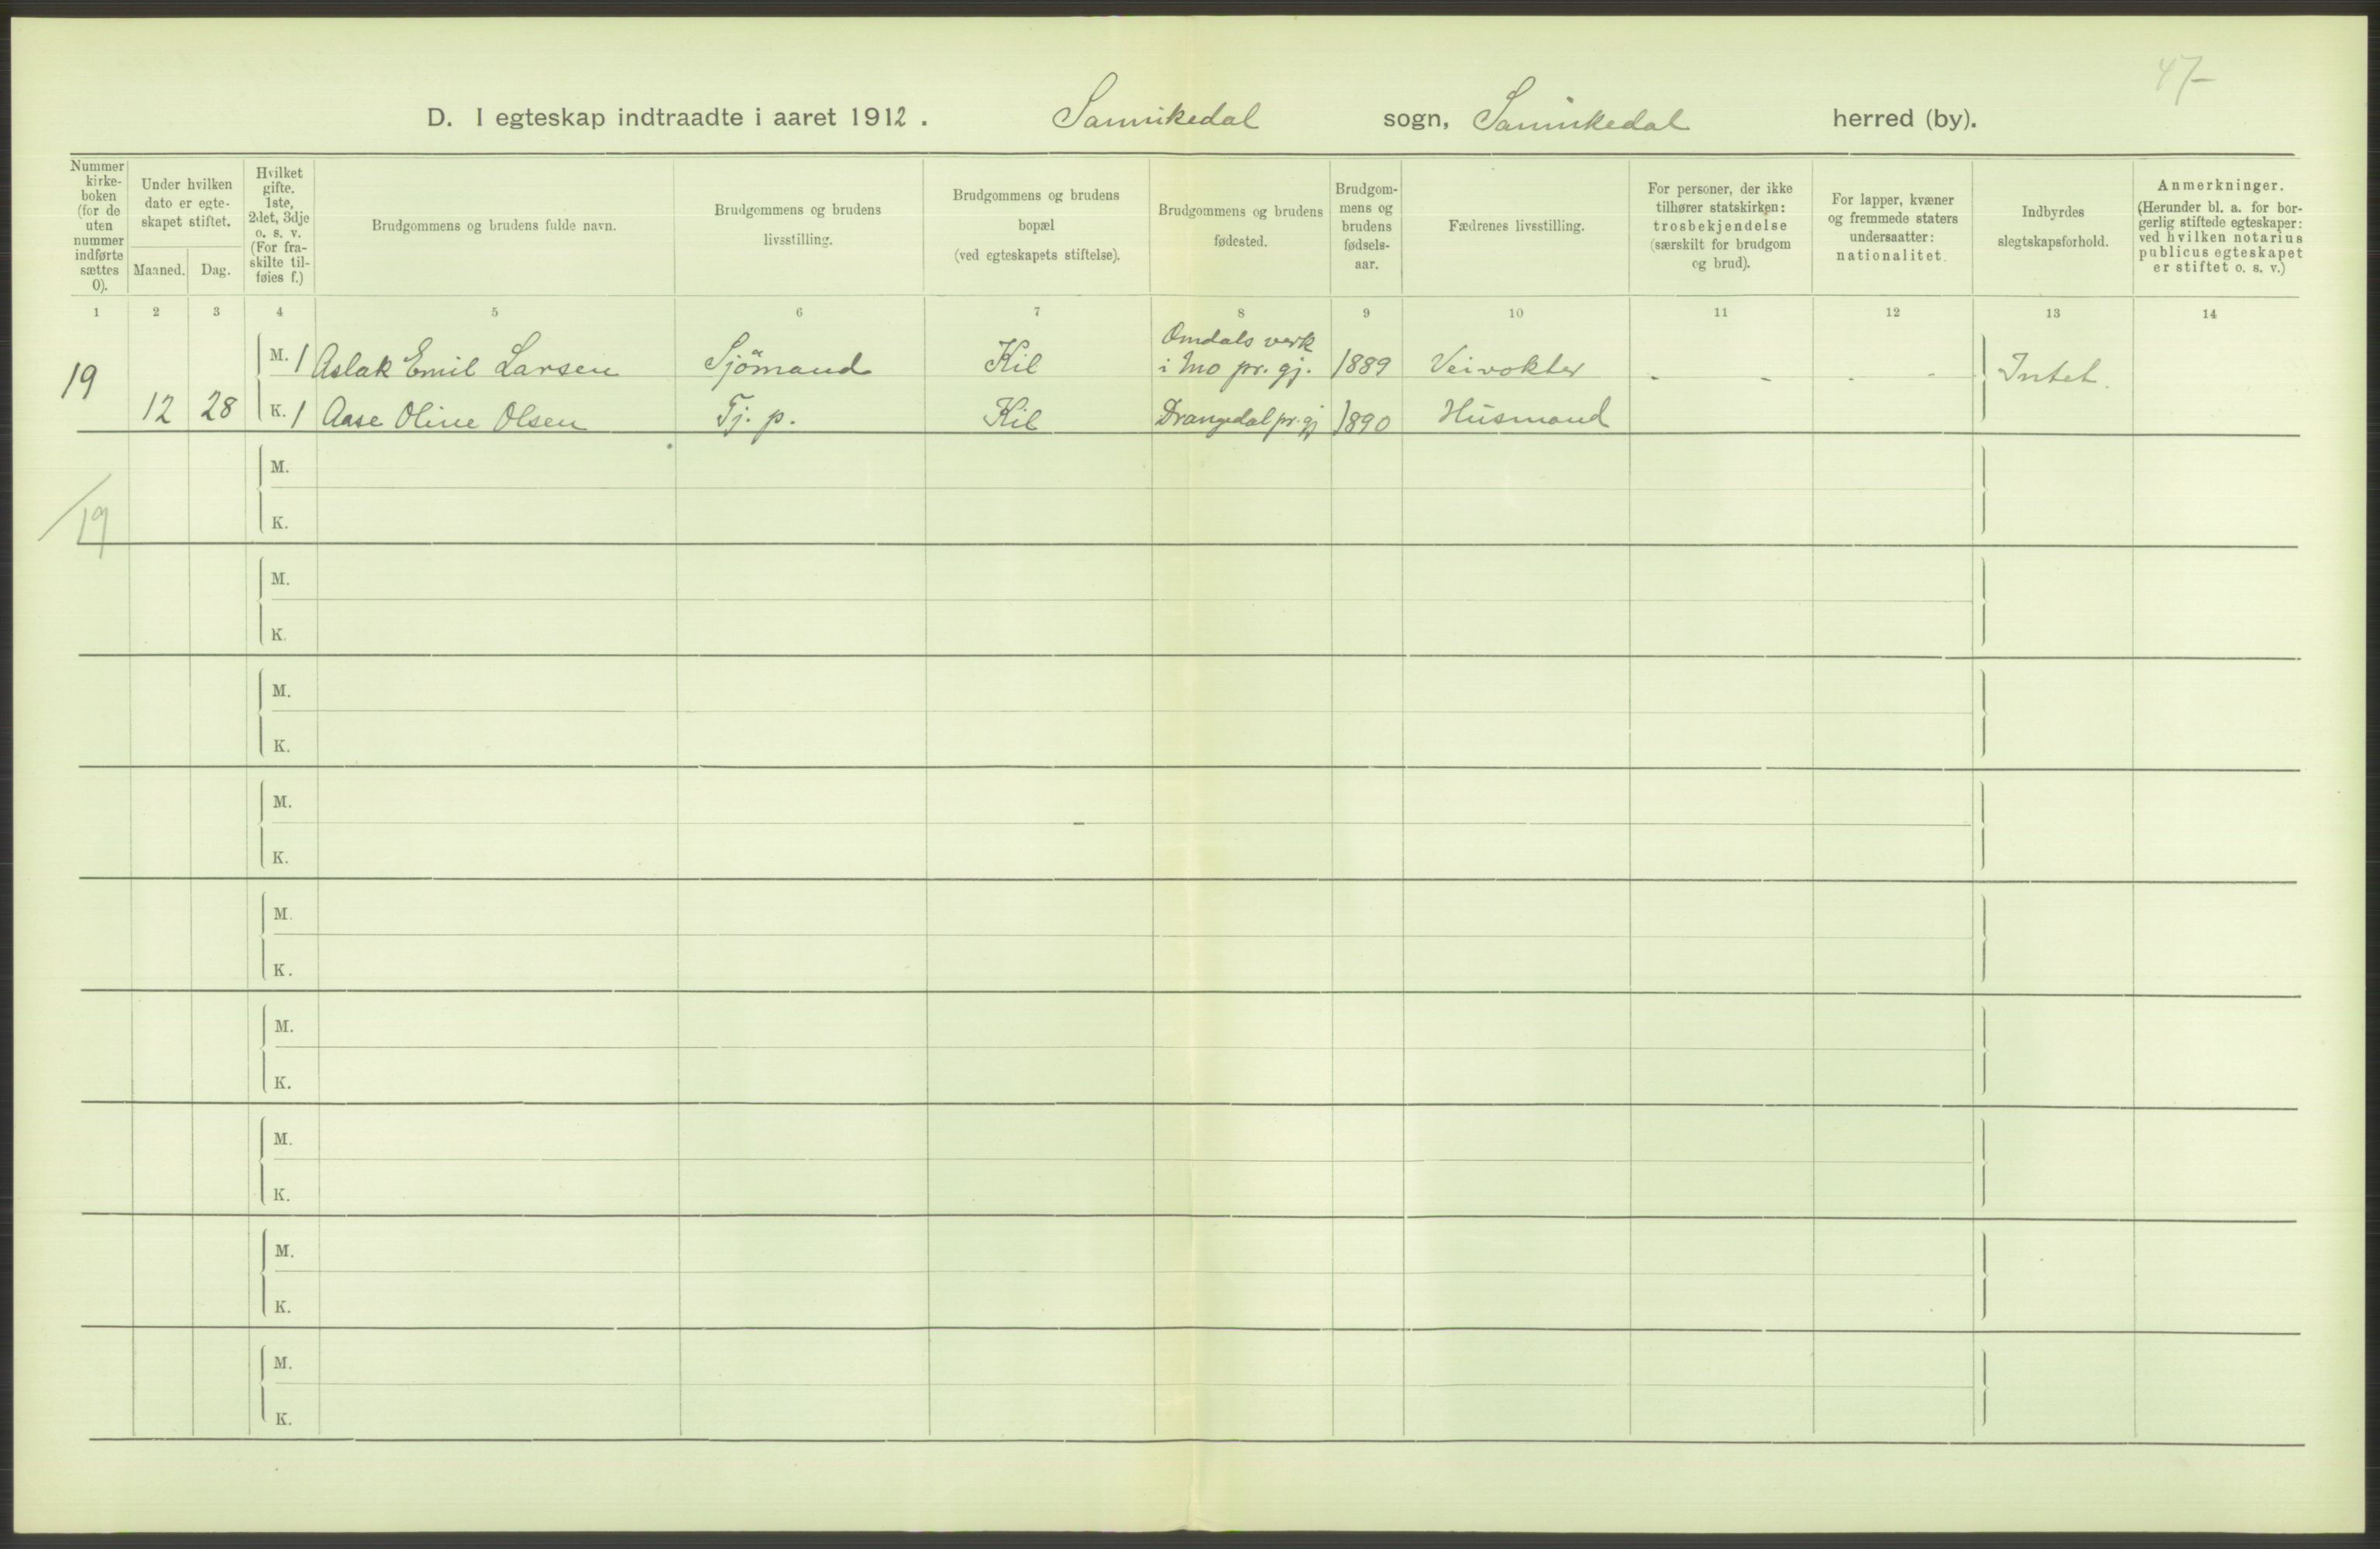 47-
D. I egteskap indtraadte i aaret 1912. Sannikedal sogn, Sannikedal herred (by).
Nummer kirke-boken (for de uten nummer indførte sættes 0).
Under hvilken dato er egte-skapet stiftet.
Maaned. Dag.
Hvilket gifte. 1ste, 2det, 3dje o. s. v. (For fra-skilte til-føies f.)
Brudgommens og brudens fulde navn.
Brudgommens og brudens livsstilling.
Brudgommens og brudens bopæl (ved egteskapets stiftelse).
Brudgommens og brudens fødested.
Brudgom-mens og brudens fødsels-aar.
Fædrenes livsstilling.
For personer, der ikke tilhører statskirken: trosbekjendelse (særskilt for brudgom og brud).
For lapper, kvæner og fremmede staters undersaatter: nationalitet.
Indbyrdes slegtskapsforhold.
Anmerkninger. (Herunder bl. a. for bor-gerlig stiftede egteskaper: ved hvilken notarius publicus egteskapet er stiftet o. s. v.)
1 2 3 4 5 6 7 8 9 10 11 12 13 14
Omdals verk
19 M. 1 Aslak Emil Larsen Sjömand Kil i Mo pr. gj. 1889 Veivokter - - - - Intet.
12 28 K. 1 Aase Oline Olsen Tj. p. Kil Drangedal pr. gj 1890 Husmand
M.
19 K.
M.
K.
M.
K.
M.
K.
M.
K.
M.
K.
M.
K.
M.
K.
M.
K.